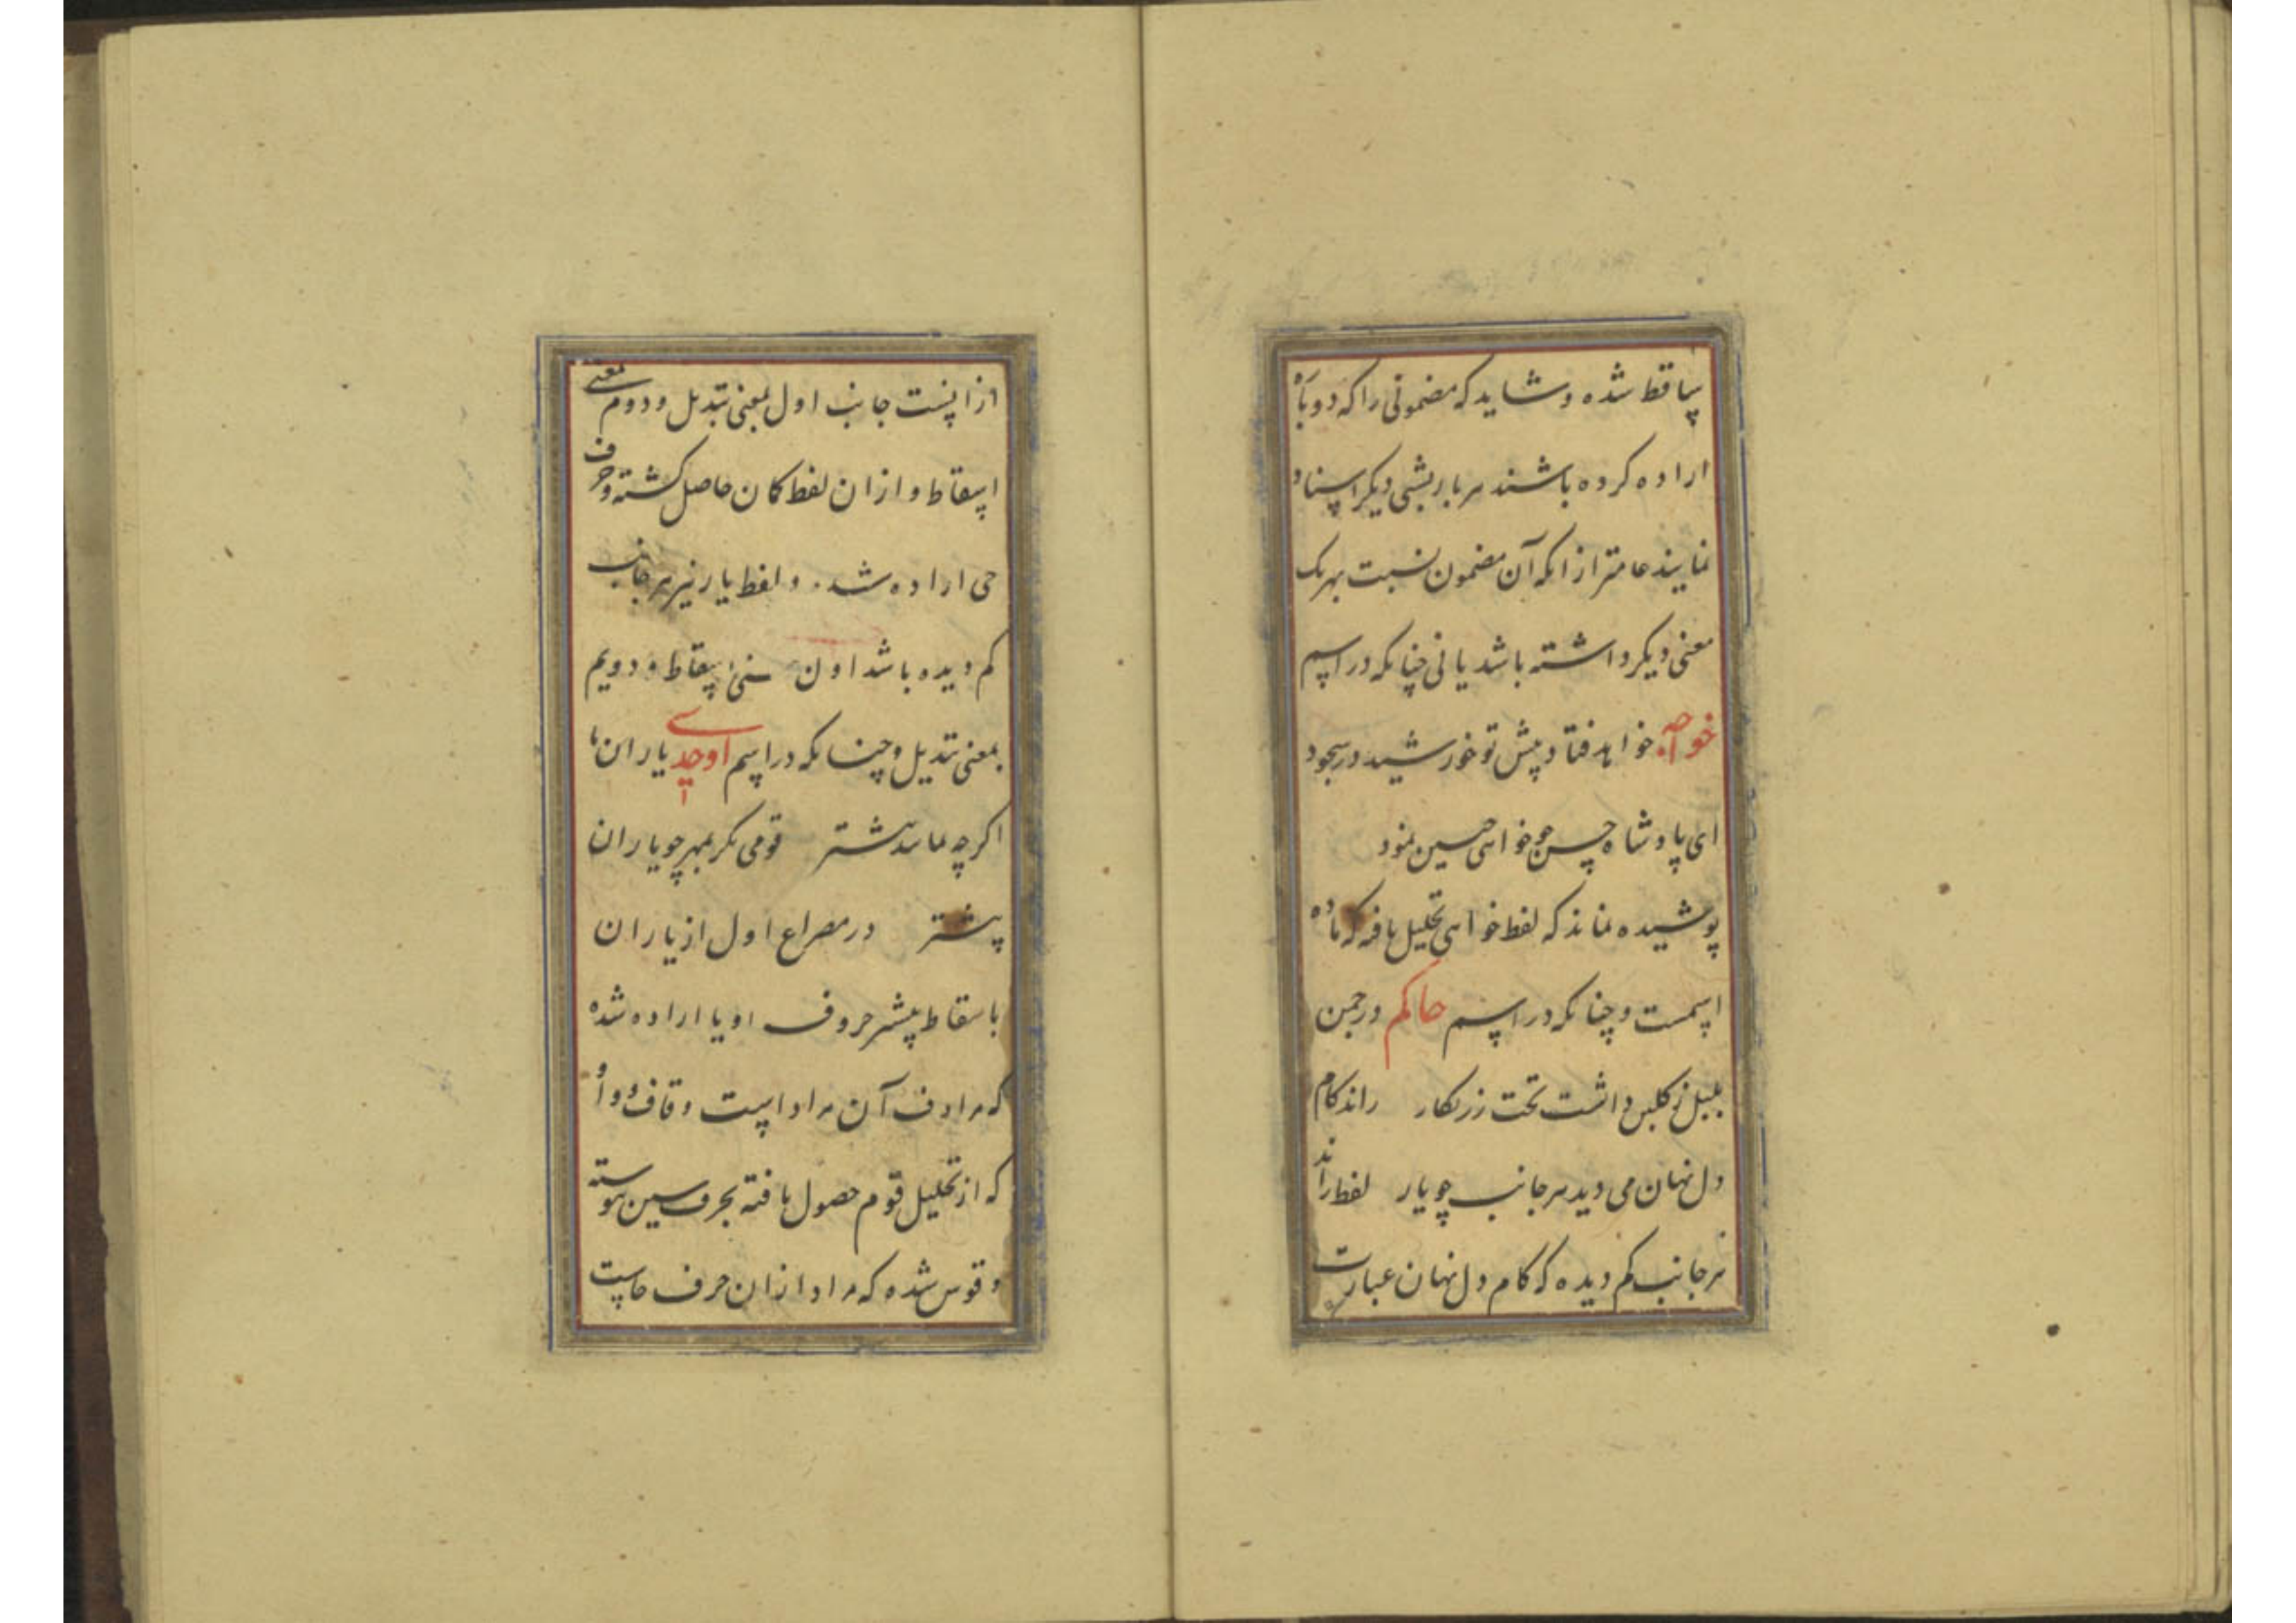 ساقط شده و شاید که مضمونی را که دوباره
اراده کرده باشند هر بار بشی دیگر اسناد
نمایند عامتر از انکه آن مضمون نسبت بهر یک
معنی دیگر داشته باشد یا نی چنانکه در اسم
خواجه خواهد فتاد پیش تو خورشید در سجود
ای پادشاه حسن چو خواهی حسین نمود
پوشیده نماند که لفظ خواهی تحلیل یافته که ماده
اسمست و چنانکه در اسم حاکم در چمن
بلبل ز گلبن داشت تخت زرنکار راند کام
دل نهان می دید هر جانب چو یار لفظ راند
هر جانب کم دیده که کام دل نهان عبارت
از انست جانب اول بمعنی تبدیل و دوم بمعنی
اسقاط و از ان لفظ کان حاصل کشته و حرف
حی اراده شد و لفظ یار نیز هر جانب
کم دیده باشد اول اسقاط و دویم
بمعنی تبدیل و چنانکه در اسم اوحدی یاران
اکرچه مانند شتر قومی مکر بمهر چو یاران
پیشتر در مصراع اول از یاران
باسقاط بیشتر حروف او یا اراده شده
که مرادف آن مراد است و قاف و واو
که از تحلیل قوم حصول یافته بحرف سین پیوسته
و قوس شده که مراد از ان حرف حاست